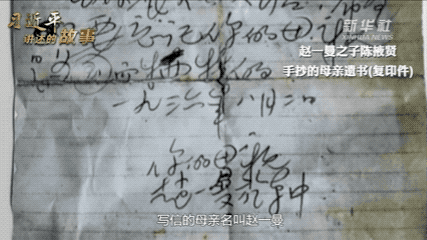 习近平
讲述的故事
新华社
赵一曼之子陈掖贤
手抄的母亲遗书(复印件)
忘记你的母亲是
国而牺牲的
一九三六年八月二日
你的母亲
赵一曼于车中
写信的母亲名叫赵一曼